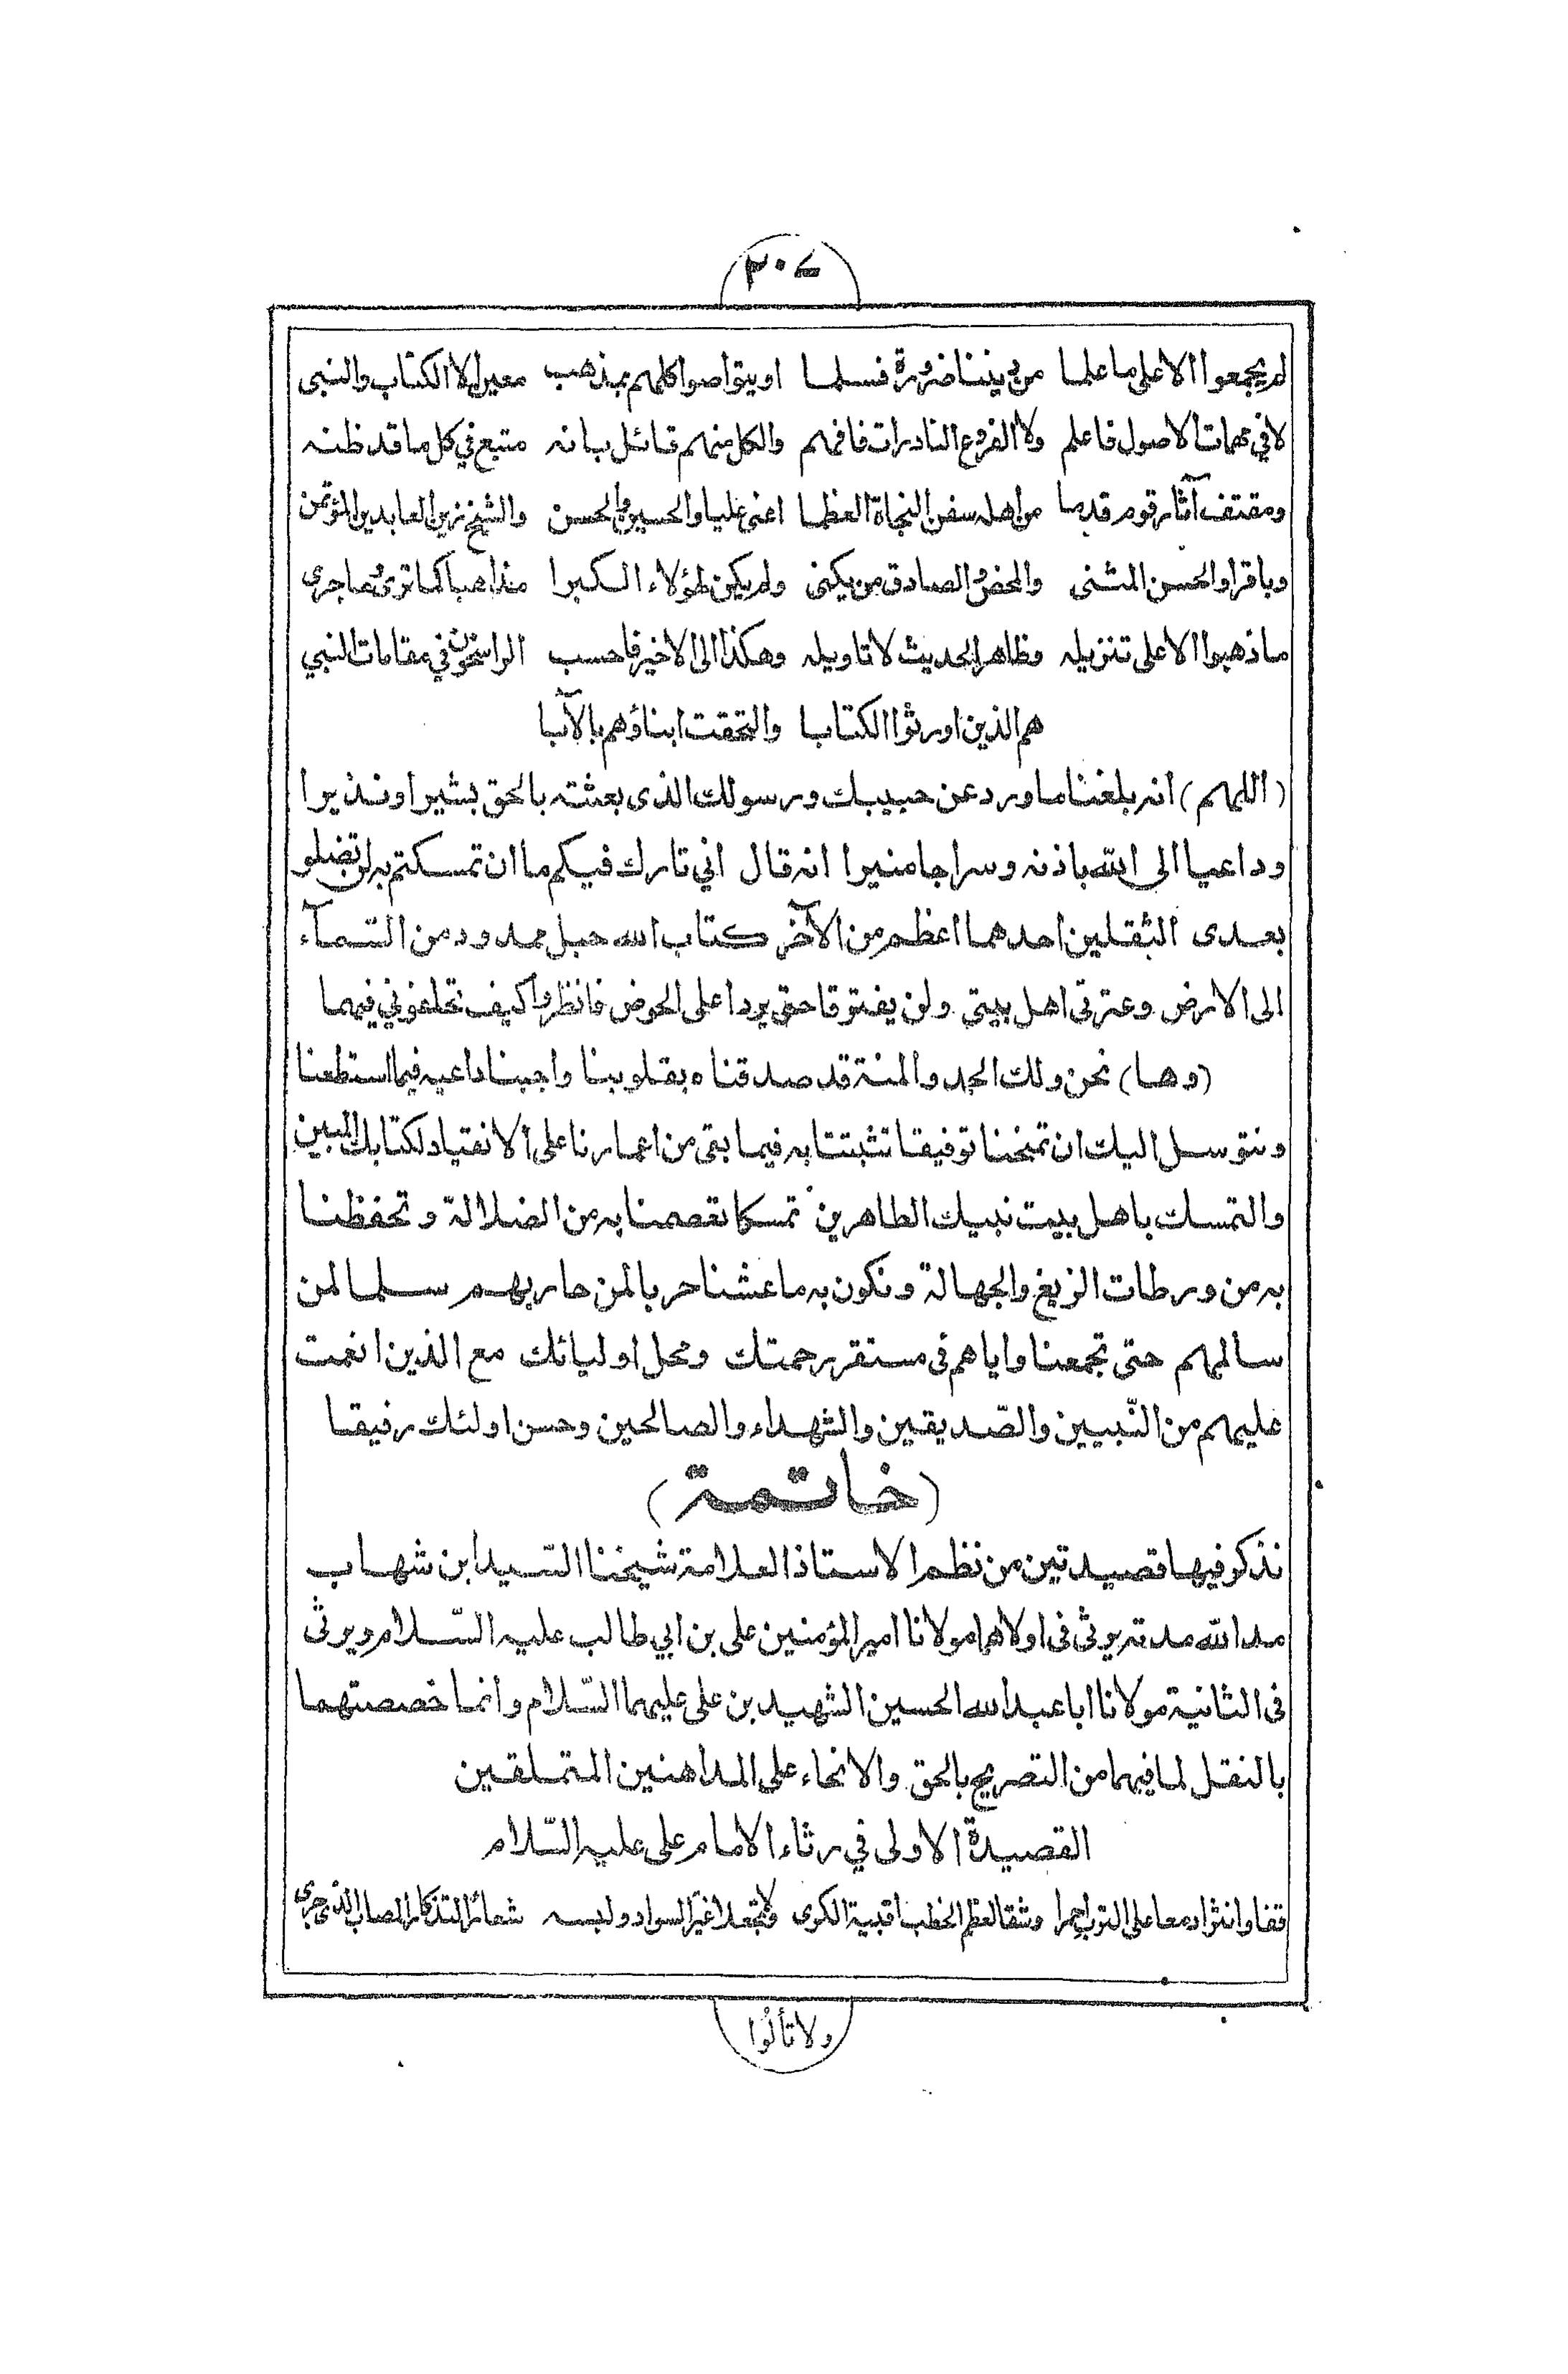 ٣٠٧
لم يجمعوا الا على ما علما من ديننا ضرورة فسلما او يتواصوا كلهم بمذهب معين لا الكتاب والنبى
لا في مهمات الاصول فاعلم ولا الفروع النادرات فافهم والكل منهم قائل بانه متبع في كل ما قد ظنه
ومقتف آثار قوم قدما من اهله سفن النجاة العظما اعنى عليا والحسين والحسن والشيخ زين العابدين المؤتمن
وباقرا والحسن المثنى والمحض والصادق من يكنى ولم يكن لهؤلاء الكبرا مذاهبا كما ترى وما جرى
ما ذهبوا الا على تنزيله وظاهر الحديث لا تاويله وهكذا الى الاخير فاحسب الراسخون في مقامات النبي
هم الذين اورثوا الكتابا والتحقت ابناؤهم بالآبا
(اللهم) انه بلغنا ما ورد عن حبيبك ورسولك الذى بعثته بالحق بشيرا ونذيرا
وداعيا الى الله باذنه وسراجا منيرا انه قال اني تارك فيكم ما ان تمسكتم به لن تضلو
بعدى الثقلين احدهما اعظم من الآخر كتاب الله حبل ممدود من السّمآء
الى الارض وعترتى اهل بيتى ولن يفترقا حتى يردا على الحوض فانظروا كيف تخلفوني فيهما
(وها) نحن ولك الحمد والمنة قد صدقناه بقلوبنا واجبنا داعيه فيما استطعنا
ونتوسل اليك ان تمنحنا توفيقا تثبتنا به فيما بقى من اعمارنا على الانقياد لكتابك المبين
والتمسك باهل بيت نبيك الطاهرين تمسكا تعصمنا به من الضلالة وتحفظنا
به من ورطات الزيغ والجهالة ونكون به ما عشنا حربا لمن حاربهم سلما لمن
سالمهم حتى تجمعنا واياهم فى مستقر رحمتك ومحل اوليائك مع الذين انعمت
عليهم من النّبيين والصّديقين والشهداء والصالحين وحسن اولئك رفيقا
(خاتمة)
نذكر فيها قصيدتين من نظم الاستاذ العلامة شيخنا السّيد ابن شهاب
مد الله مدته يرثى فى اولاهما مولانا امير المؤمنين على بن ابي طالب عليه السّلام ويرثى
فى الثانية مولانا ابا عبد الله الحسين الشهيد بن على عليهما السّلام وانما خصصتهما
بالنقل لما فيهما من التصريح بالحق والانحاء على المداهنين المتملقين
القصيدة الاولى في رثاء الامام على عليه السّلام
قفا وانثرا دمعا على الترب احمرا وشقا لعظم الخطب اقبية الكرى ولا تجعلا غير السواد ولبسه شعائر التذكار المصاب الذى جرى
ولا تألوا